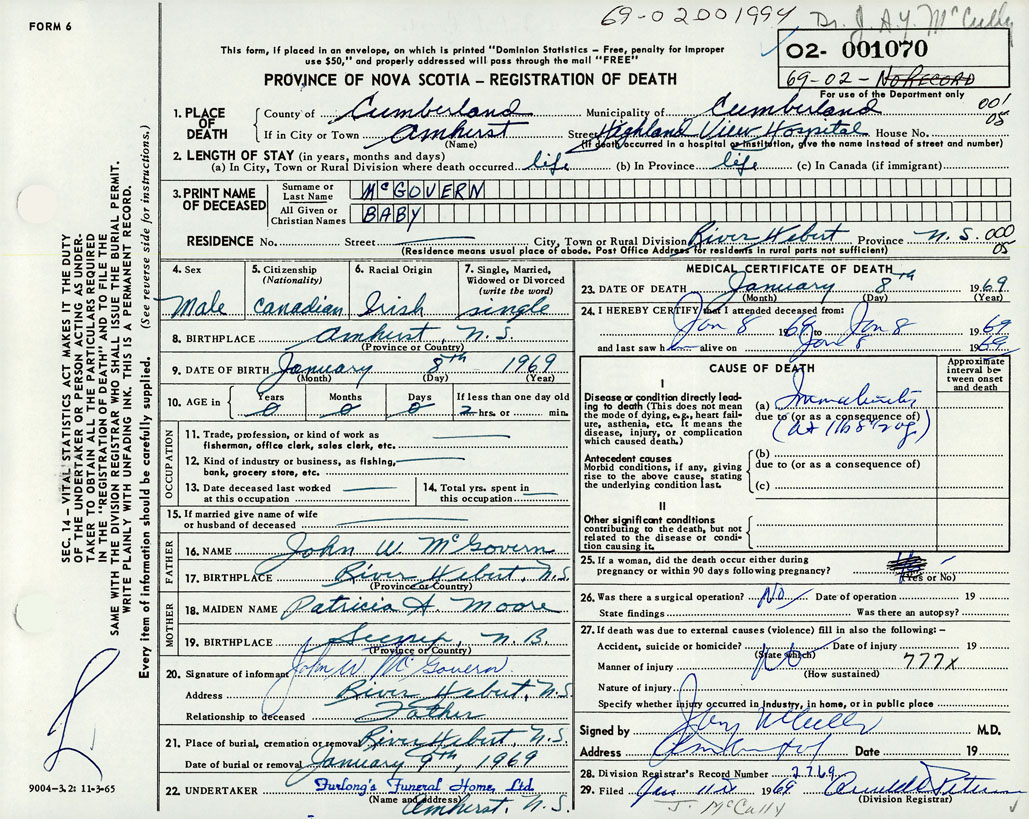 69-02001994
Dr. J. A. Y. McCully
FORM 6
02- 001070
69-02- NO RECORD
For use of the Department only
This form, if placed in an envelope, on which is printed "Dominion Statistics – Free, penalty for improper
use $50," and properly addressed will pass through the mail "FREE"
PROVINCE OF NOVA SCOTIA – REGISTRATION OF DEATH
1. PLACE OF DEATH
County of Cumberland Municipality of Cumberland 001
If in City or Town Amherst Street Highland View Hospital House No. 05
(Name) (If death occurred in a hospital or institution, give the name instead of street and number)
2. LENGTH OF STAY (in years, months and days)
(a) In City, Town or Rural Division where death occurred life (b) In Province life (c) In Canada (if immigrant)
3. PRINT NAME OF DECEASED
Surname or Last Name McGOVERN
All Given or Christian Names BABY
RESIDENCE No. Street City, Town or Rural Division River Hebert Province N.S. 000
(Residence means usual place of abode. Post Office Address for residents in rural parts not sufficient) 05
4. Sex
Male
5. Citizenship
(Nationality)
Canadian
6. Racial Origin
Irish
7. Single, Married,
Widowed or Divorced
(write the word)
single
8. BIRTHPLACE Amherst, N.S.
(Province or Country)
9. DATE OF BIRTH January 8th 1969
(Month) (Day) (Year)
10. AGE in Years Months Days If less than one day old
0 0 0 2 hrs. or min.
OCCUPATION
11. Trade, profession, or kind of work as
fisherman, office clerk, sales clerk, etc.
12. Kind of industry or business, as fishing,
bank, grocery store, etc.
13. Date deceased last worked
at this occupation
14. Total yrs. spent in
this occupation
15. If married give name of wife
or husband of deceased
FATHER
16. NAME John W. McGovern
17. BIRTHPLACE River Hebert, N.S.
(Province or Country)
MOTHER
18. MAIDEN NAME Patricia A. Moore
19. BIRTHPLACE N.B.
(Province or Country)
20. Signature of informant John W McGovern
Address River Hebert, N.S.
Relationship to deceased Father
21. Place of burial, cremation or removal River Hebert, N.S.
Date of burial or removal January 9th, 1969
22. UNDERTAKER Furlong's Funeral Home, Ltd.
(Name and address)
Amherst, N.S.
MEDICAL CERTIFICATE OF DEATH
23. DATE OF DEATH January 8th 1969
(Month) (Day) (Year)
24. I HEREBY CERTIFY that I attended deceased from:
Jan 8 1969 to Jan 8 1969
and last saw h alive on Jan 8 1969
CAUSE OF DEATH
Approximate
interval be-
tween onset
and death
I
Disease or condition directly lead-
ing to death (This does not
mean the mode of dying, e.g., heart fail-
ure, asthenia, etc. It means the
disease, injury, or complication
which caused death.)
(a) Immaturity
due to (or as a consequence of)
Antecedent causes
Morbid conditions, if any, giving
rise to the above cause, stating
the underlying condition last.
(b)
due to (or as a consequence of)
(c)
II
Other significant conditions
contributing to the death, but not
related to the disease or condi-
tion causing it.
25. If a woman, did the death occur either during
pregnancy or within 90 days following pregnancy?
(Yes or No)
26. Was there a surgical operation? No Date of operation 19
State findings Was there an autopsy?
27. If death was due to external causes (violence) fill in also the following: –
Accident, suicide or homicide? Date of injury 19
(State which)
Manner of injury 777x
(How sustained)
Nature of injury
Specify whether injury occurred in industry, in home, or in public place
Signed by M.D.
Address Date 19
28. Division Registrar's Record Number 2769
29. Filed 1969
(Division Registrar)
J. McCully
SEC. 14 – VITAL STATISTICS ACT MAKES IT THE DUTY
OF THE UNDERTAKER OR PERSON ACTING AS UNDER-
TAKER TO OBTAIN ALL THE PARTICULARS REQUIRED
IN THE "REGISTRATION OF DEATH" AND TO FILE THE
SAME WITH THE DIVISION REGISTRAR WHO SHALL ISSUE THE BURIAL PERMIT.
WRITE PLAINLY WITH UNFADING INK. THIS IS A PERMANENT RECORD.
Every item of information should be carefully supplied. (See reverse side for instructions.)
9004-3.2: 11-3-65